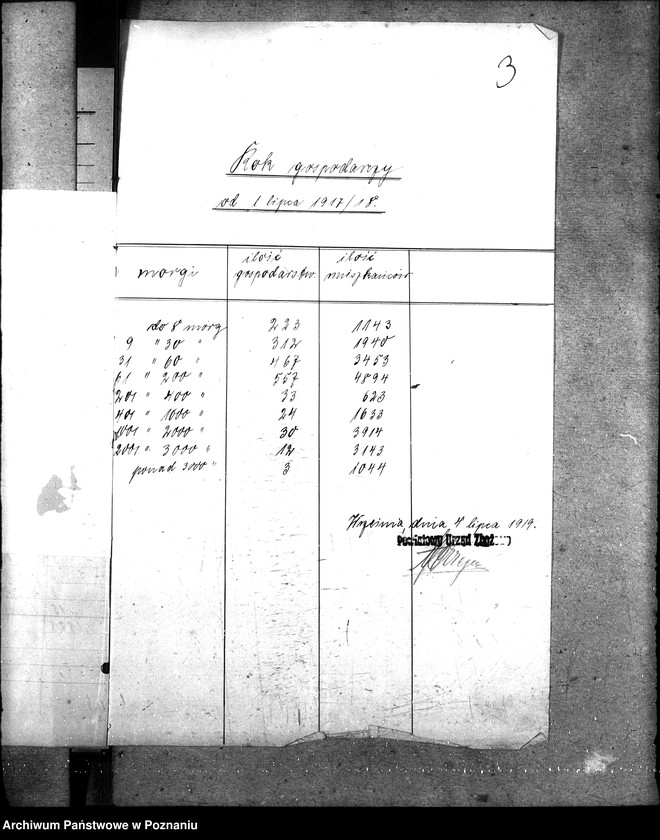 3
Rok gospodarczy
od 1 lipca 1917/18.
morgi ilość gospodarstw ilość mieszkańców
do 8 morg 223 1143
9 " 30 " 312 1940
31 " 60 " 467 3453
61 " 200 " 557 4894
201 " 400 " 33 623
401 " 1000 " 24 1633
1001 " 2000 " 30 3914
2001 " 3000 " 12 3143
ponad 3000 " 3 1044
Września, dnia 4 lipca 1919.
Powiatowy Urząd
Archiwum Państwowe w Poznaniu